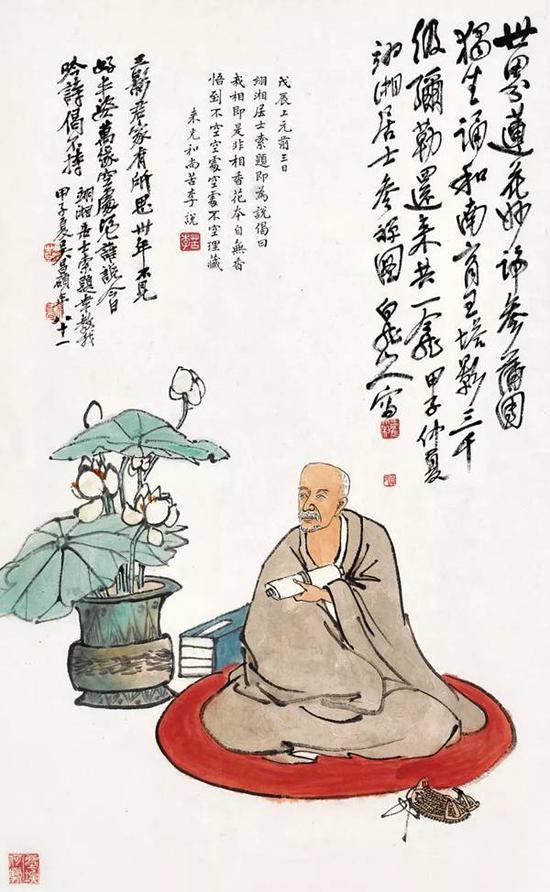 世界蓮花妙諦參蒲團
獨坐誦和南育王塔影三千
級彌勒還來共一龕 甲子仲夏
翊湘居士參禪圖 白龍山人寫
戊辰上元前三日
翊湘居士索題即為說偈曰
我相即是非相香花本自無香
悟到不空空處空處不空理藏
來光和尚苦李說
苦李
三影君家有所思卅年不見
好丰姿萬緣空處憑誰說今日
吟詩偈持
翊湘居士索題幸教我
甲子夏吳昌碩年八十一